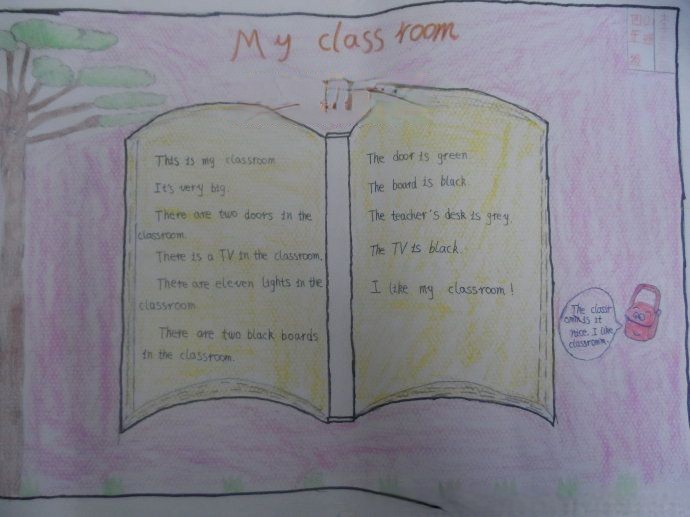 My class room
This is my classroom
It's very big.
There are two doors in the
classroom.
There is a TV in the classroom.
There are eleven lights in the
classroom
There are two black boards
in the classroom.
The door is green.
The board is black.
The teacher's desk is grey.
The TV is black.
I like my classroom!
The classr
oom is it
nice. I like
classroom.